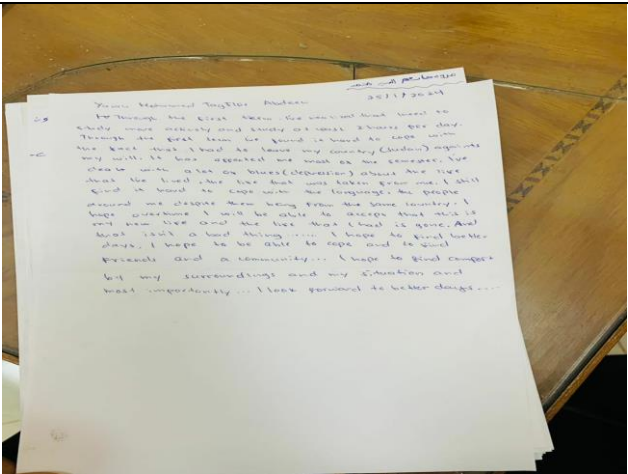 25/1/2024
Mohammed Abdeen
Through the first term, I've realised that need to
study more actively and study at least 2 hours per day.
Through the first team I've found it hard to cope with
the fact that I had to leave my country (Sudan) againts
my will. It has affected me most of the semester. I've
dealt with a lot of blues (depression) about the live
that the lived, the live that was taken from me. I still
find it hard to cope with the language, the people
around me despite them being from the same country. I
hope overtime I will be able to accept that this is
my new live and the live that I had is gone. And
that isn't a bad thing..... I hope to find better
days, I hope to be able to cope and to find
friends and a community... I hope to find comfort
by my surroundings and my situation and
most importantly... I look forward to better days....